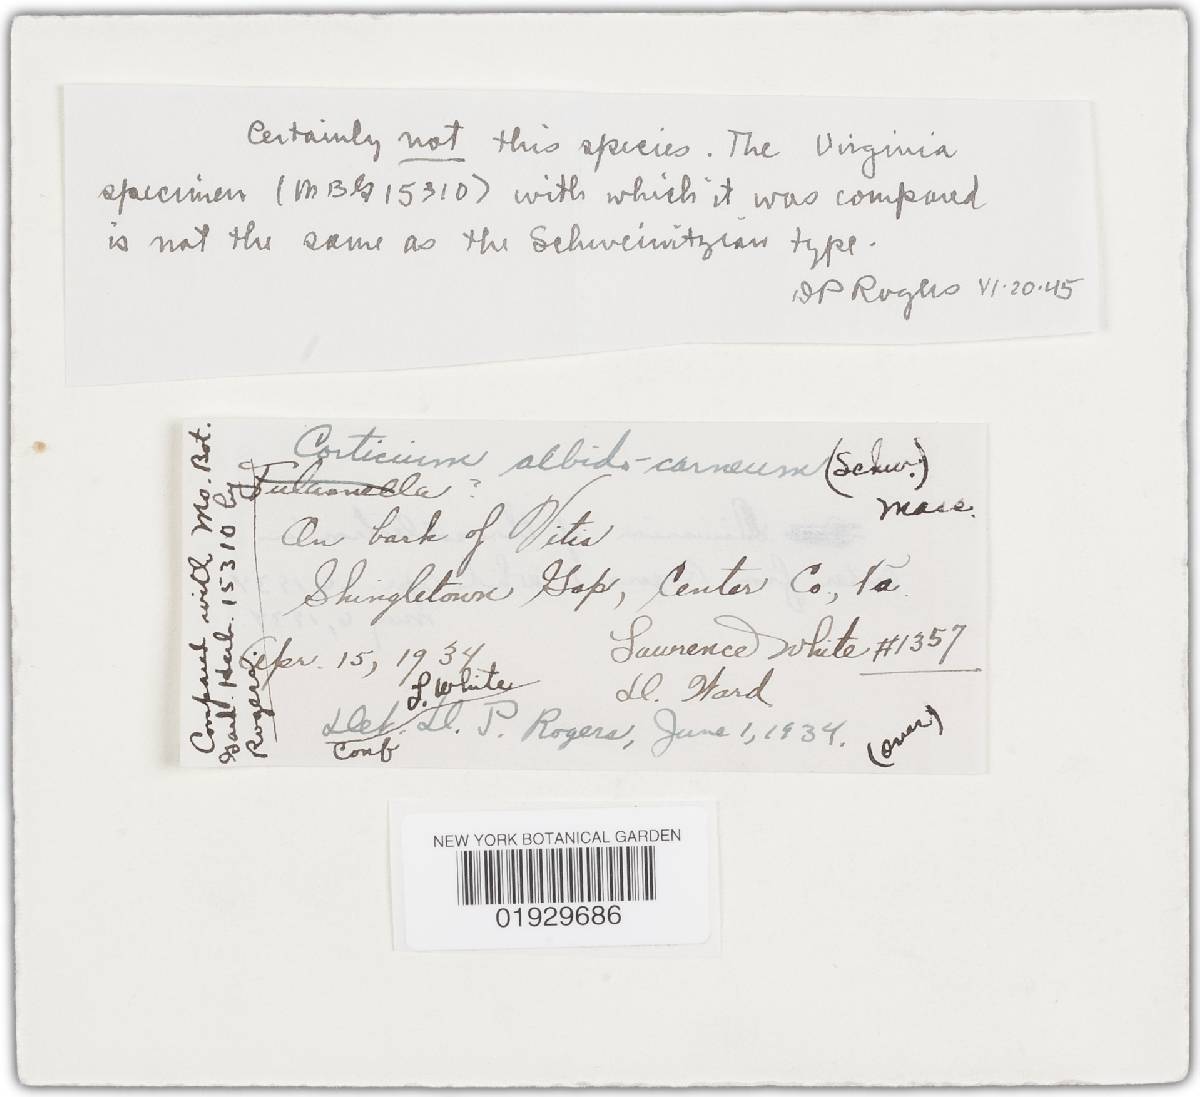 Certainly not this species. The Virginia
specimen (MBG 15310) with which it was compared
is not the same as the Schweinitzian type.
DP Rogers VI·20·45
Compared with Mo. Bot.
Gard. Herb. 15310 by
Rogers.
Corticium albido-carneum (Schw.)
Mass.
?
On bark of Vitis
Shingletown Gap, Center Co., Pa.
Apr. 15, 1934 Lawrence White #1357
L. White D. Ward
Det. D. P. Rogers, June 1, 1934.
Conf (over)
NEW YORK BOTANICAL GARDEN
01929686